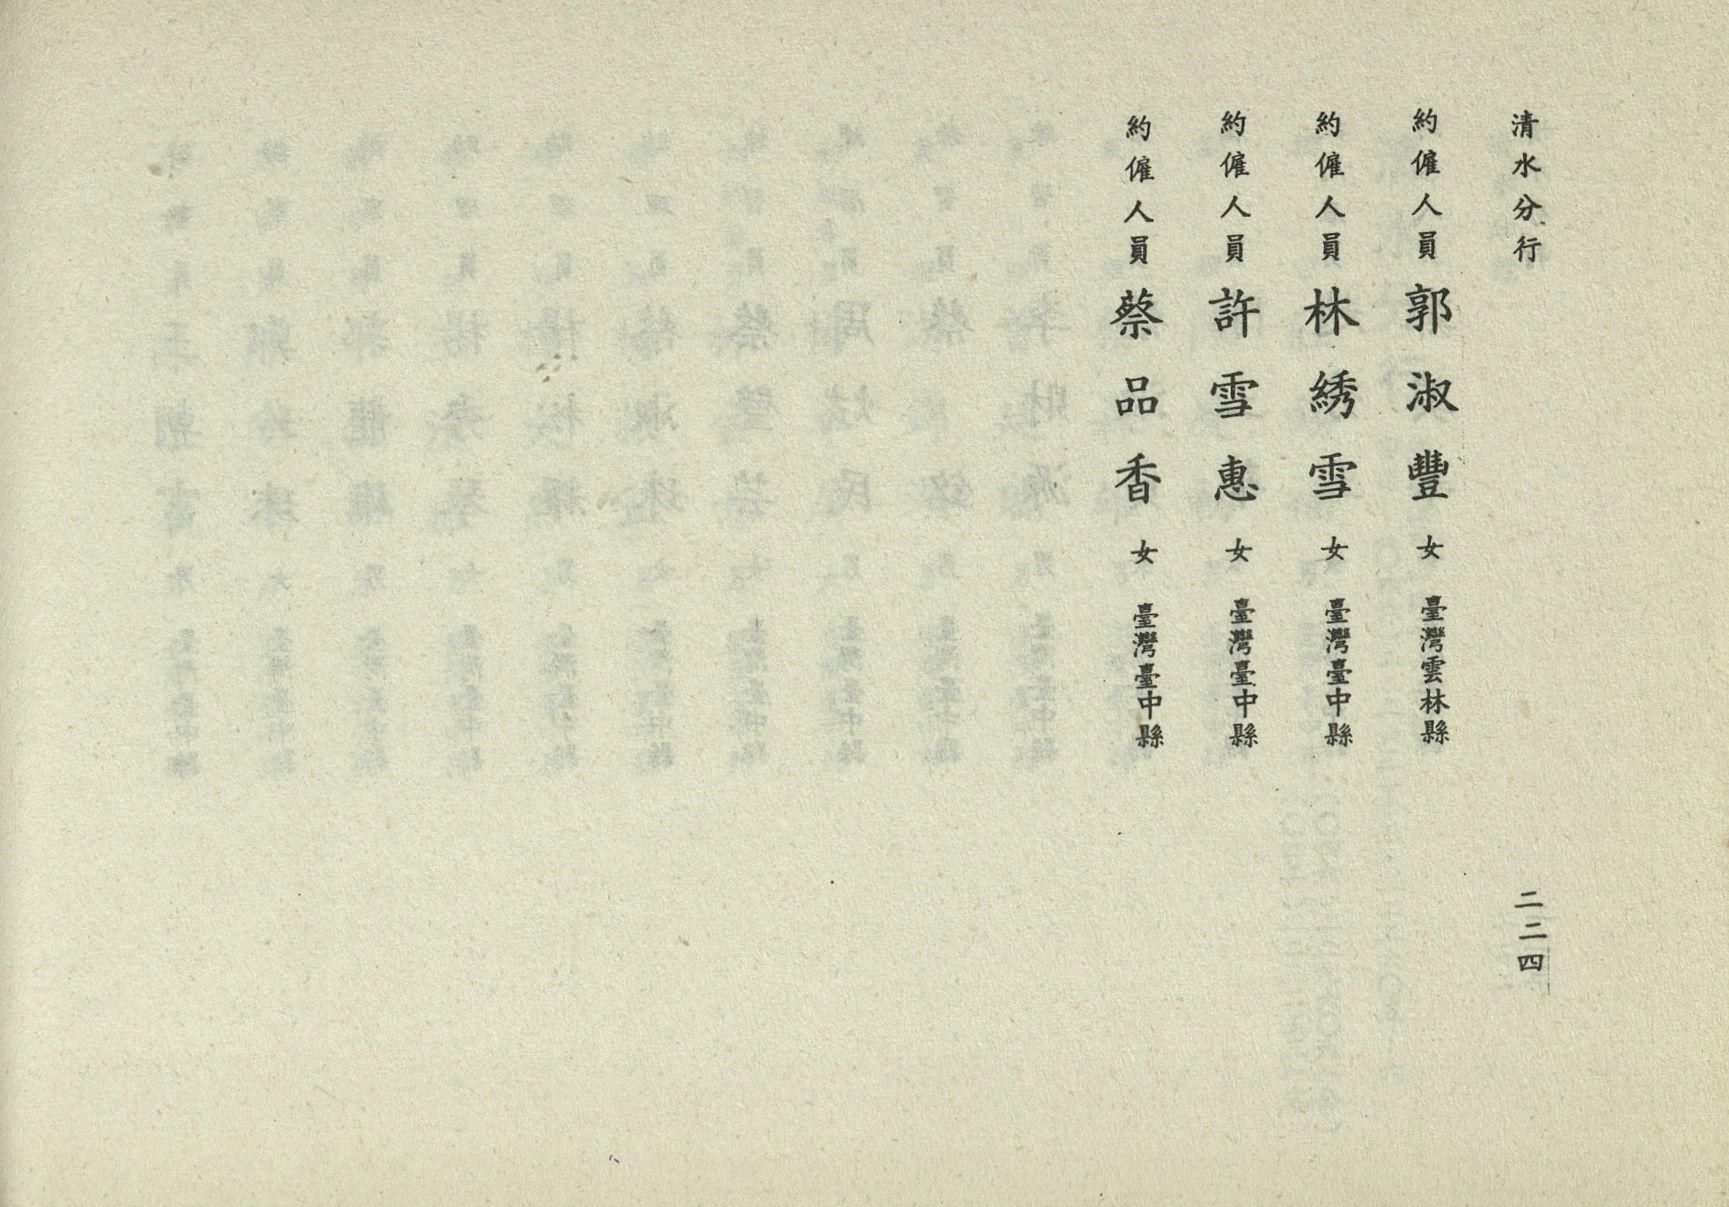 清水分行
二二四
約僱人員郭淑豐女臺灣雲林縣
約僱人員林綉雪女臺灣臺中縣
約僱人員許雪惠女臺灣臺中縣
約僱人員蔡品香女臺灣臺中縣